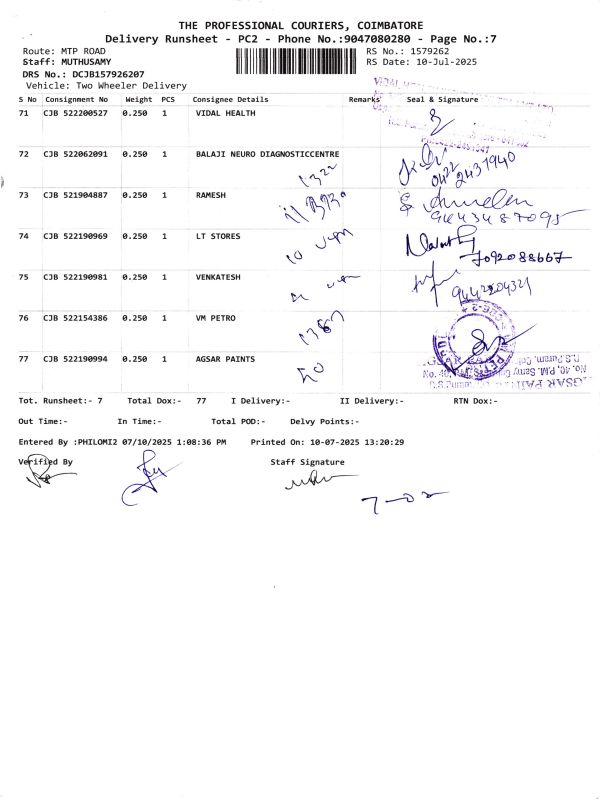 THE PROFESSIONAL COURIERS, COIMBATORE
Delivery Runsheet - PC2 - Phone No.:9047080280 - Page No.:7
Route: MTP ROAD RS No.: 1579262
Staff: MUTHUSAMY RS Date: 10-Jul-2025
DRS No.: DCJB157926207
Vehicle: Two Wheeler Delivery
S No Consignment No Weight PCS Consignee Details Remarks Seal & Signature
71 CJB 522200527 0.250 1 VIDAL HEALTH
72 CJB 522062091 0.250 1 BALAJI NEURO DIAGNOSTICCENTRE
1322 0422 2431940
73 CJB 521904887 0.250 1 RAMESH
9443487095
74 CJB 522190969 0.250 1 LT STORES
7092088667
75 CJB 522190981 0.250 1 VENKATESH
9442204321
76 CJB 522154386 0.250 1 VM PETRO
77 CJB 522190994 0.250 1 AGSAR PAINTS
Tot. Runsheet:- 7 Total Dox:- 77 I Delivery:- II Delivery:- RTN Dox:-
Out Time:- In Time:- Total POD:- Delvy Points:-
Entered By :PHILOMI2 07/10/2025 1:08:36 PM Printed On: 10-07-2025 13:20:29
Verified By Staff Signature
7-02